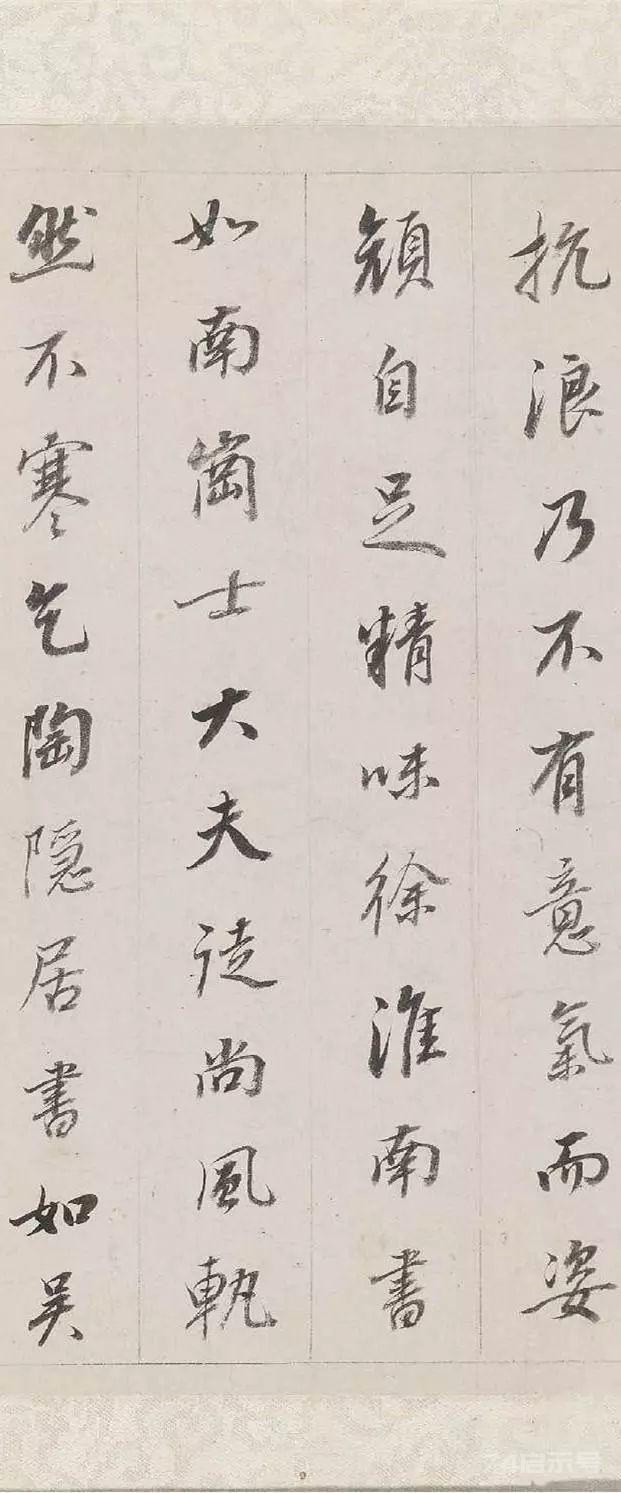 抗浪乃不有意氣而姿
顏自足精味徐淮南書
如南崗士大夫徒尚風軌
然不寒乞陶隱居書如吴